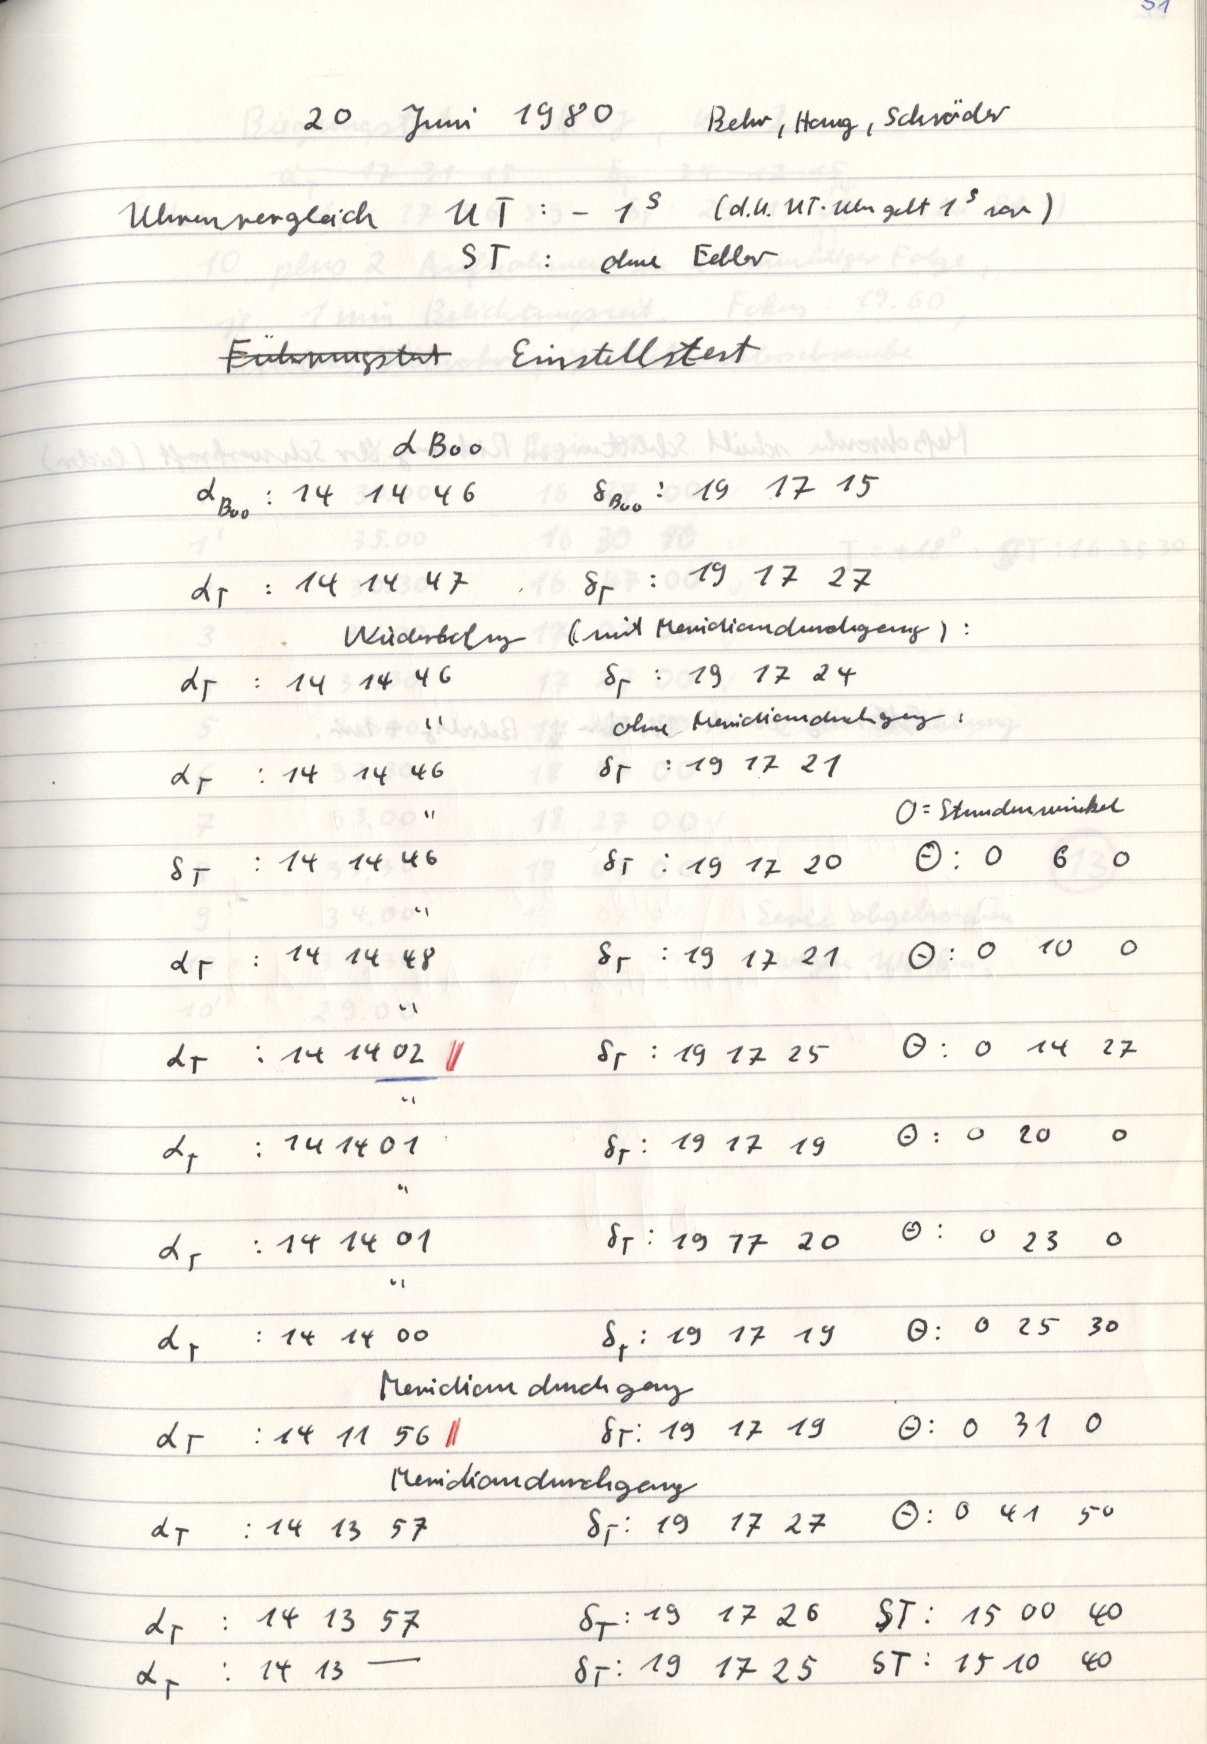 51
20 Juni 1980 Behr, Haug, Schröder
Uhrenvergleich UT : - 1ˢ (d.h. UT-Uhr geht 1ˢ vor)
ST : ohne Fehler
Führungstest Einstelltest
α Boo
α Boo : 14 14 46 δ Boo : 19 17 15
α_T : 14 14 47 δ_T : 19 17 27
Wiederholung (mit Meridiandurchgang) :
α_T : 14 14 46 δ_T : 19 17 24
" ohne Meridiandurchgang :
α_T : 14 14 46 δ_T : 19 17 21
" Θ = Stundenwinkel
δ_T : 14 14 46 δ_T : 19 17 20 Θ : 0 6 0
"
α_T : 14 14 48 δ_T : 19 17 21 Θ : 0 10 0
"
α_T : 14 14 02 || δ_T : 19 17 25 Θ : 0 14 27
"
α_T : 14 14 01 δ_T : 19 17 19 Θ : 0 20 0
"
α_T : 14 14 01 δ_T : 19 17 20 Θ : 0 23 0
"
α_T : 14 14 00 δ_T : 19 17 19 Θ : 0 25 30
Meridiandurchgang
α_T : 14 11 56 || δ_T : 19 17 19 Θ : 0 31 0
Meridiandurchgang
α_T : 14 13 57 δ_T : 19 17 27 Θ : 0 41 50
α_T : 14 13 57 δ_T : 19 17 26 ST : 15 00 40
α_T : 14 13 — δ_T : 19 17 25 ST : 15 10 40